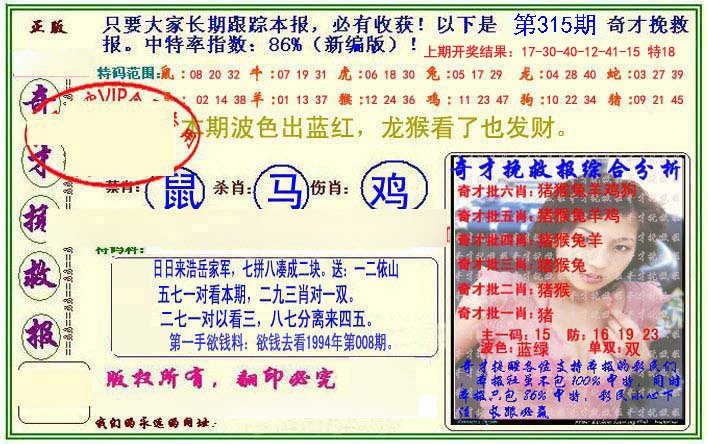 正版
只要大家长期跟踪本报，必有收获！以下是 第315期 奇才挽救
报。中特率指数：86%（新编版）！
上期开奖结果：17-30-40-12-41-15 特18
特码范围：鼠：08 20 32 牛：07 19 31 虎：06 18 30 兔：05 17 29 龙：04 28 40 蛇：03 27 39
02 14 38 羊：01 13 37 猴：12 24 36 鸡：11 23 47 狗：10 22 34 猪：09 21 45
VIP会
用
本期波色出蓝红，龙猴看了也发财。
奇才挽救报
禁肖：鼠 杀肖：马 伤肖：鸡
特码料：
日日来浩岳家军，七拼八凑成二块。送：一二依山
五七一对看本期，二九三肖对一双。
二七一对以看三，八七分离来四五。
第一手欲钱料：欲钱去看1994年第008期。
版权所有，翻印必究
我们的永远的网址：
奇才挽救报综合分析
奇才批六肖：猪猴兔羊鸡狗
奇才批五肖：猪猴兔羊鸡
奇才批四肖：猪猴兔羊
奇才批三肖：猪猴兔
奇才批二肖：猪猴
奇才批一肖：猪
主一码：15 防：16 19 23
波色：蓝绿 单双：双
奇才挽救各位支持本报的彩民们
，本报社虽不包100%中特，同时
本报只包86%中特，彩民小心下
注，长跟必赢